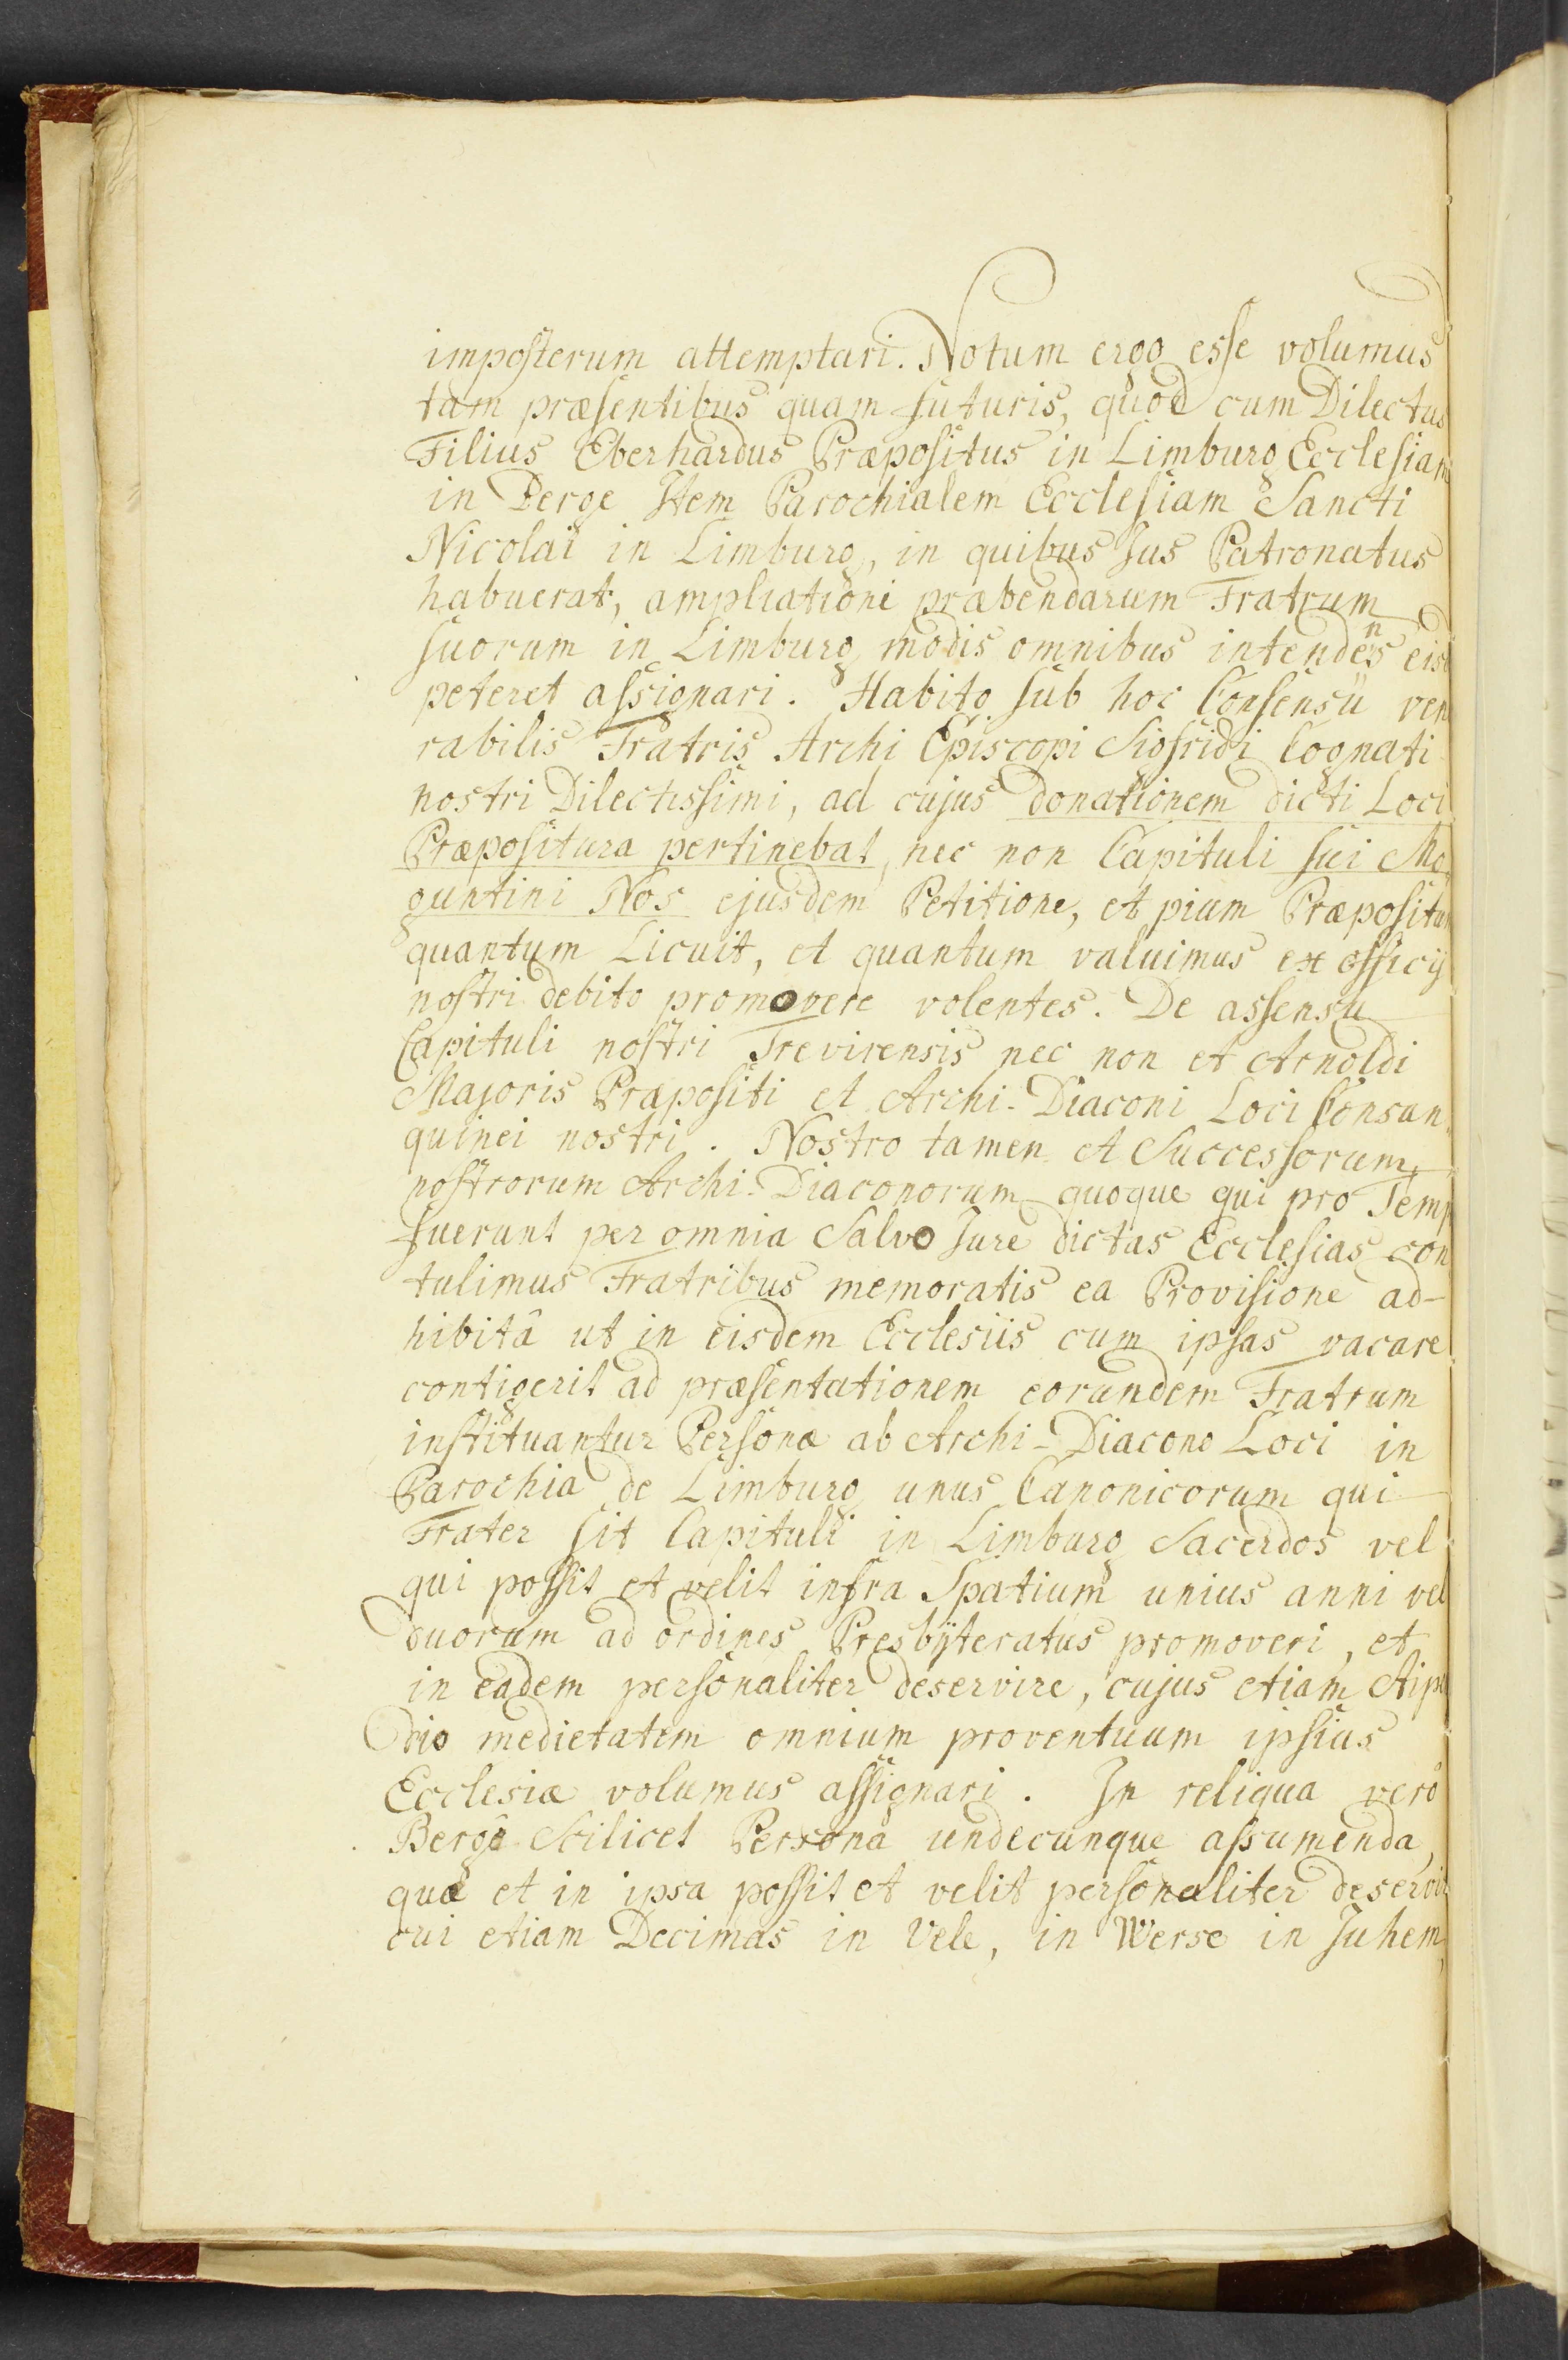 imposterum attemptari. Notum ergo esse volumus
tam præsentibus quam futuris, quod cum Dilectus
Filius Eberhardus Præpositus in Limburg Ecclesiam
in Berge Item Parochialem Ecclesiam Sancti
Nicolai in Limburg, in quibus Jus Patronatus
habuerat, ampliationi præbendarum Fratrum
suorum in Limburg modis omnibus intendens eisd
peteret assignari. Habito sub hoc Consensu ven
rabilis Fratris Archi Episcopi Sigfridi Cognati
nostri Dilectissimi, ad cujus donationem dicti Loci
Præpositura pertinebat, nec non Capituli sui Mo,
guntini Nos ejusdem Petitione, et pium Præpositum
quantum Licuit, et quantum valuimus ex officij
nostri debito promovere volentes. De assensu
Capituli nostri Trevirensis nec non et Arnoldi
Majoris Præpositi et Archi-Diaconi Loci Consan,
guinei nostri. Nostro tamen et Successorum
nostrorum Archi-Diaconorum quoque qui pro Temp
fuerunt per omnia Salvo Jure dictas Ecclesias con
tulimus Fratribus memoratis ea Provisione ad-
hibitâ ut in eisdem Ecclesiis cum ipsas vacare
contigerit ad præsentationem eorundem Fratrum
instituantur Personæ ab Archi-Diacono Loci in
Parochia de Limburg unus Canonicorum qui
Frater sit Capituli in Limburg Sacerdos vel
qui possit et velit infra Spatium unius anni vel
duorum ad ordines Presbÿteratus promoveri, et
in eadem personaliter deservire, cujus etiam stipen
dio medietatem omnium proventuum ipsius
Ecclesiæ volumus assignari. In reliqua verò
Berge Scilicet Persona undecunque assumenda,
quæ et in ipsa possit et velit personaliter deservir
cui etiam Decimas in Vele, in Werse in Juhem,